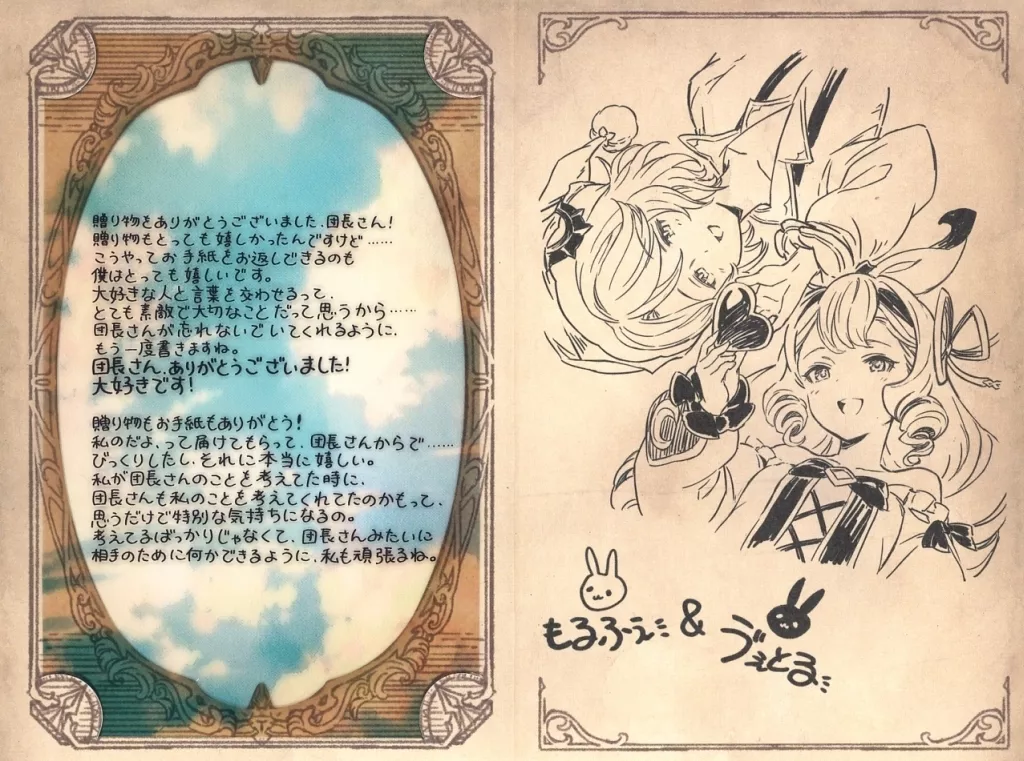 贈り物をありがとうございました、団長さん!
贈り物もとっても嬉しかったんですけど……
こうやってお手紙をお返しできるのも
僕はとっても嬉しいです。
大好きな人と言葉を交わせるって、
とても素敵で大切なことだって思うから……
団長さんが忘れないでいてくれるように、
もう一度書きますね。
団長さん、ありがとうございました!
大好きです!
贈り物もお手紙もありがとう!
私のだよ、って届けてもらって、団長さんからで……
びっくりしたし、それに本当に嬉しい。
私が団長さんのことを考えてた時に、
団長さんも私のことを考えてくれてたのかもって、
思うだけで特別な気持ちになるの。
考えてるばっかりじゃなくて、団長さんみたいに
相手のために何かできるように、私も頑張るね。
もるふぇ & ゔぇとる